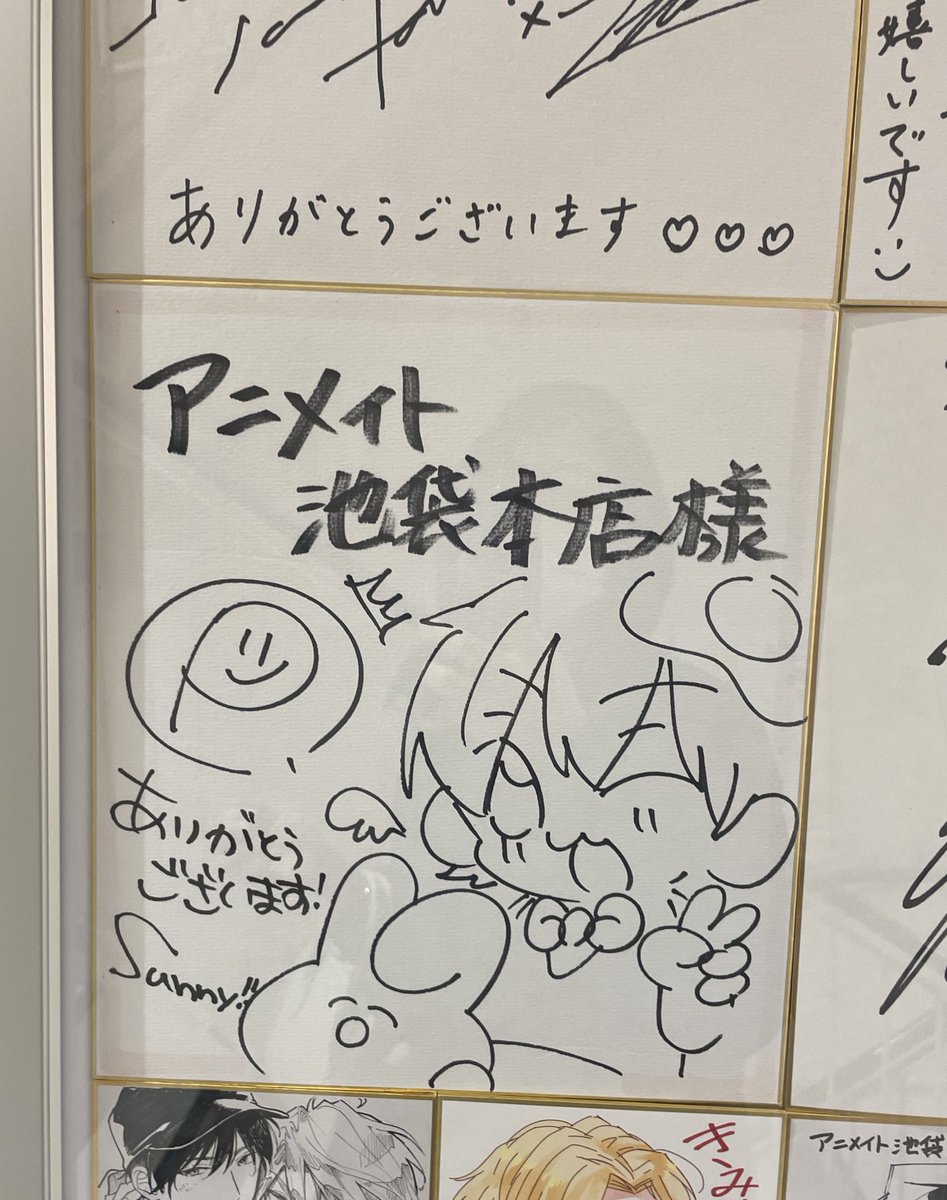 ありがとうございます♡♡♡
嬉しいです:)
アニメイト
池袋本店様
ありがとう
ございます!
Sunny!!
きんみ
アニメイト池袋